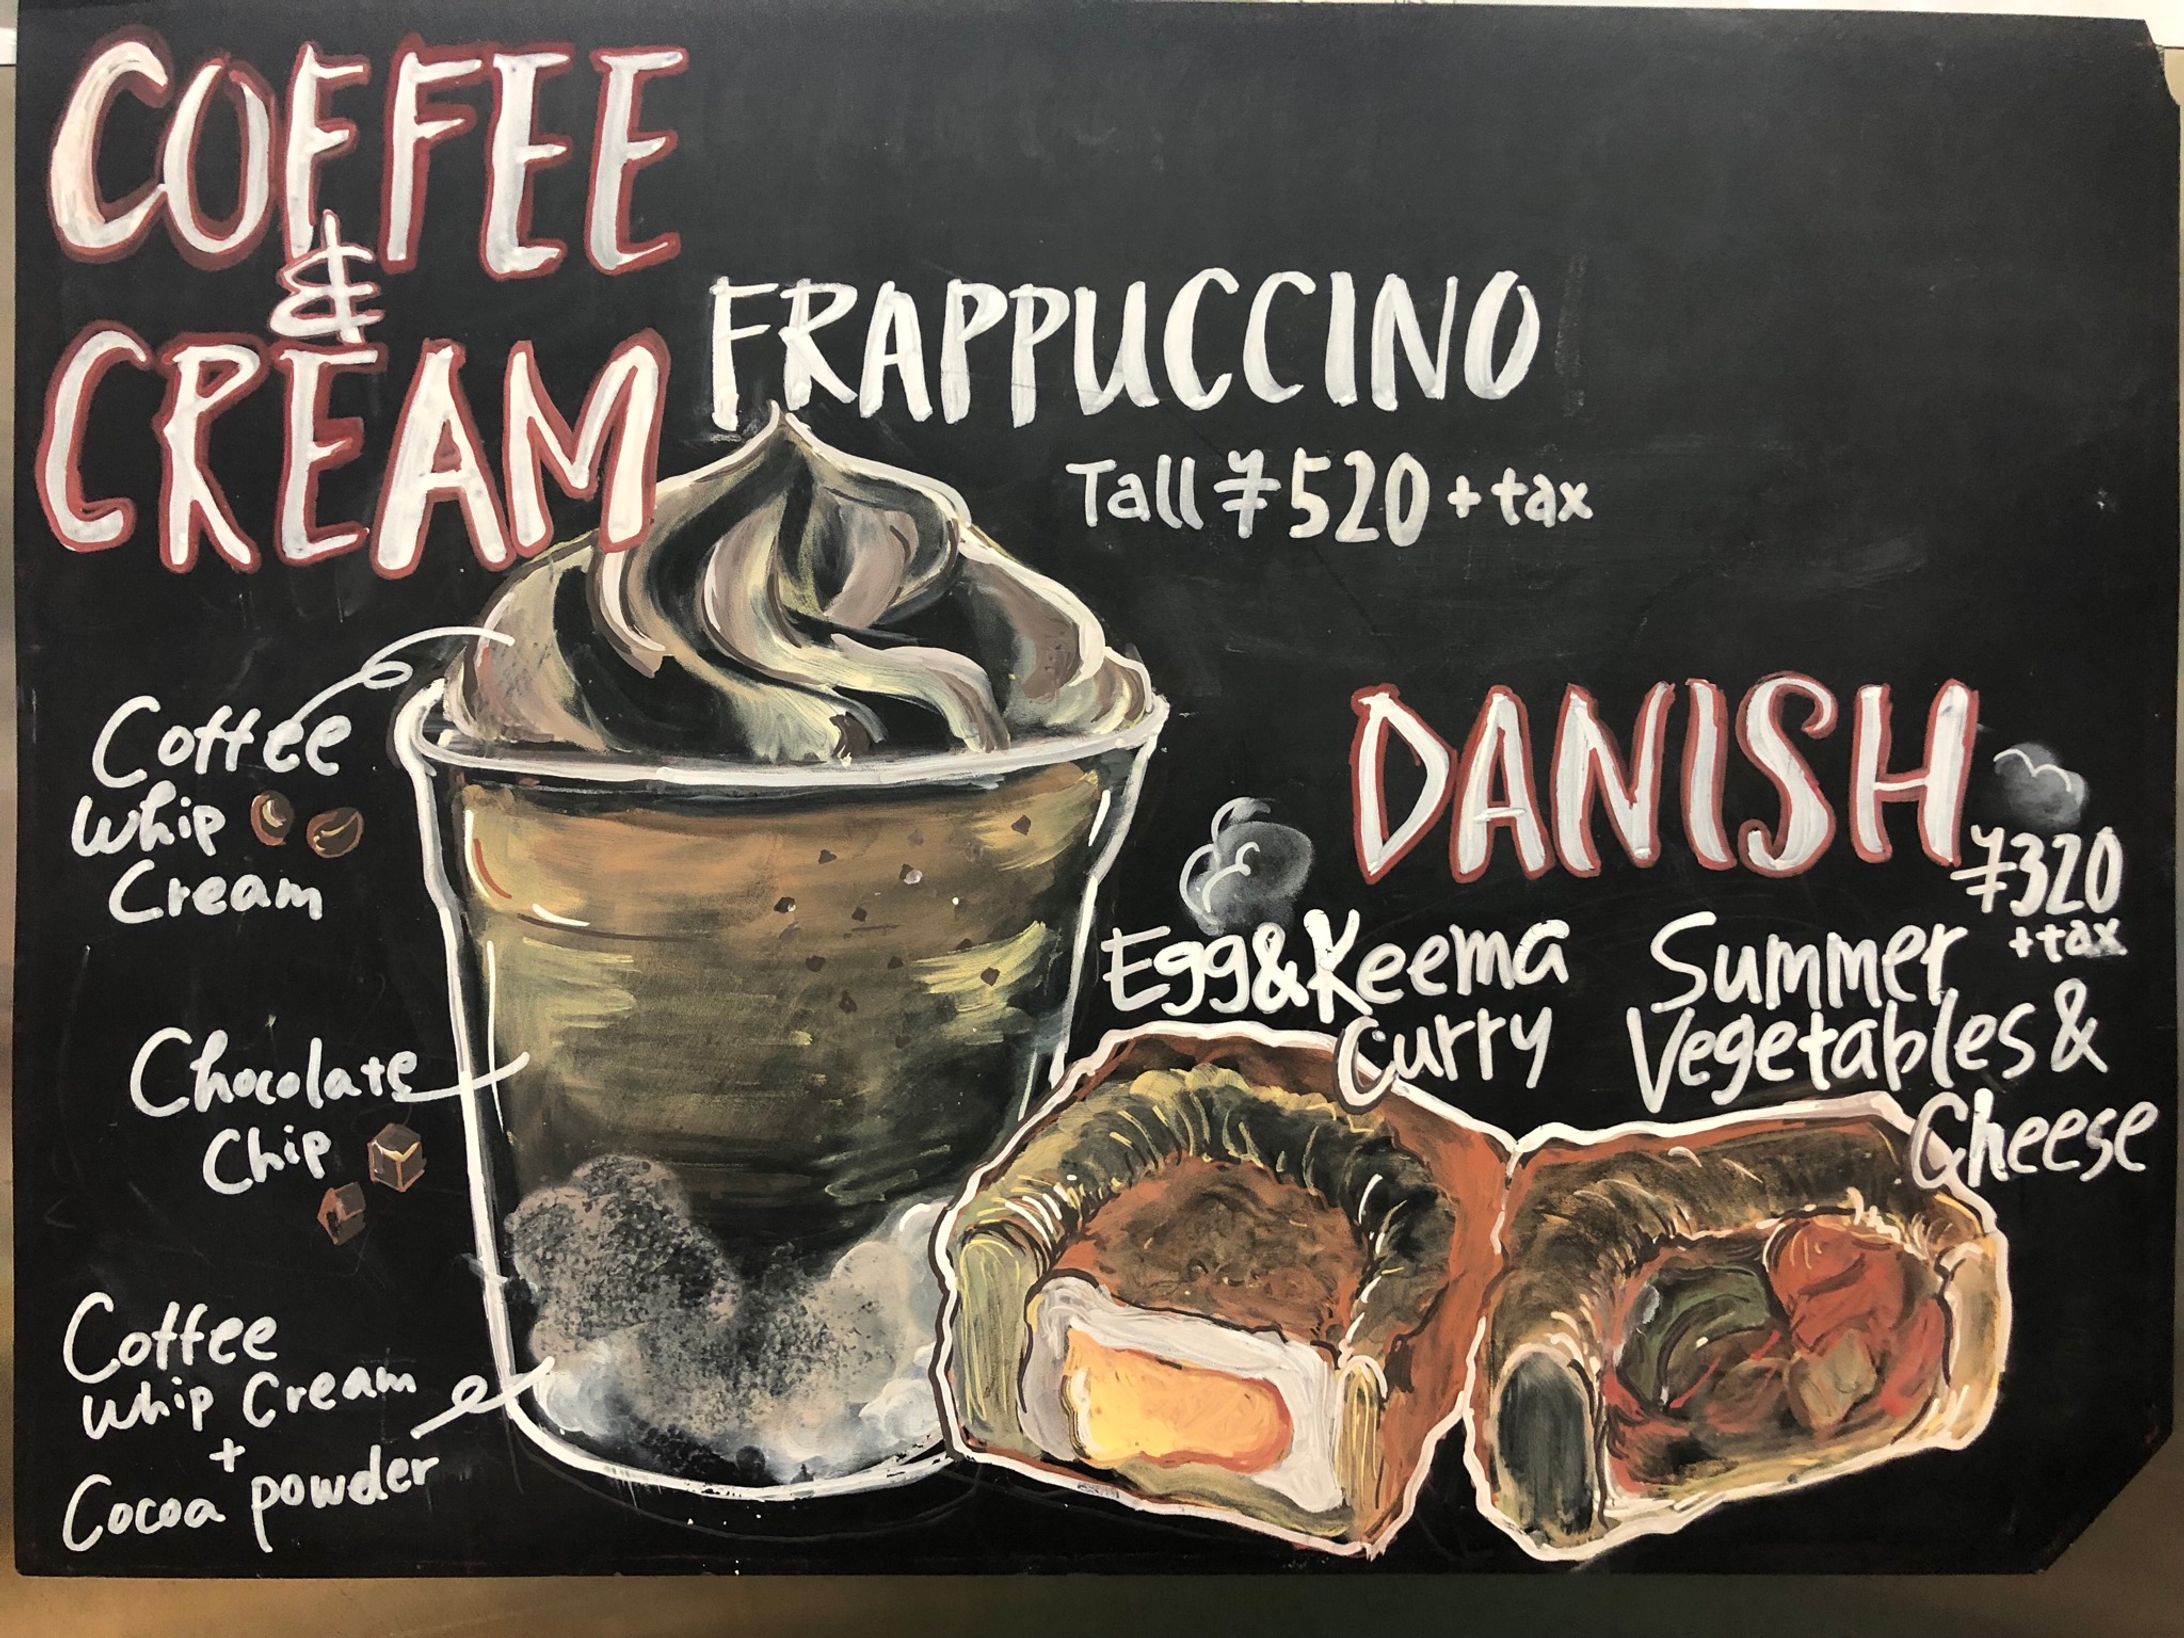 COFFEE
&
CREAM
FRAPPUCCINO
Tall ¥520 + tax
Coffee
Whip
Cream
Chocolate
Chip
Coffee
Whip Cream
+
Cocoa powder
DANISH
¥320
+tax
Egg&Keema
Curry
Summer
Vegetables &
Cheese